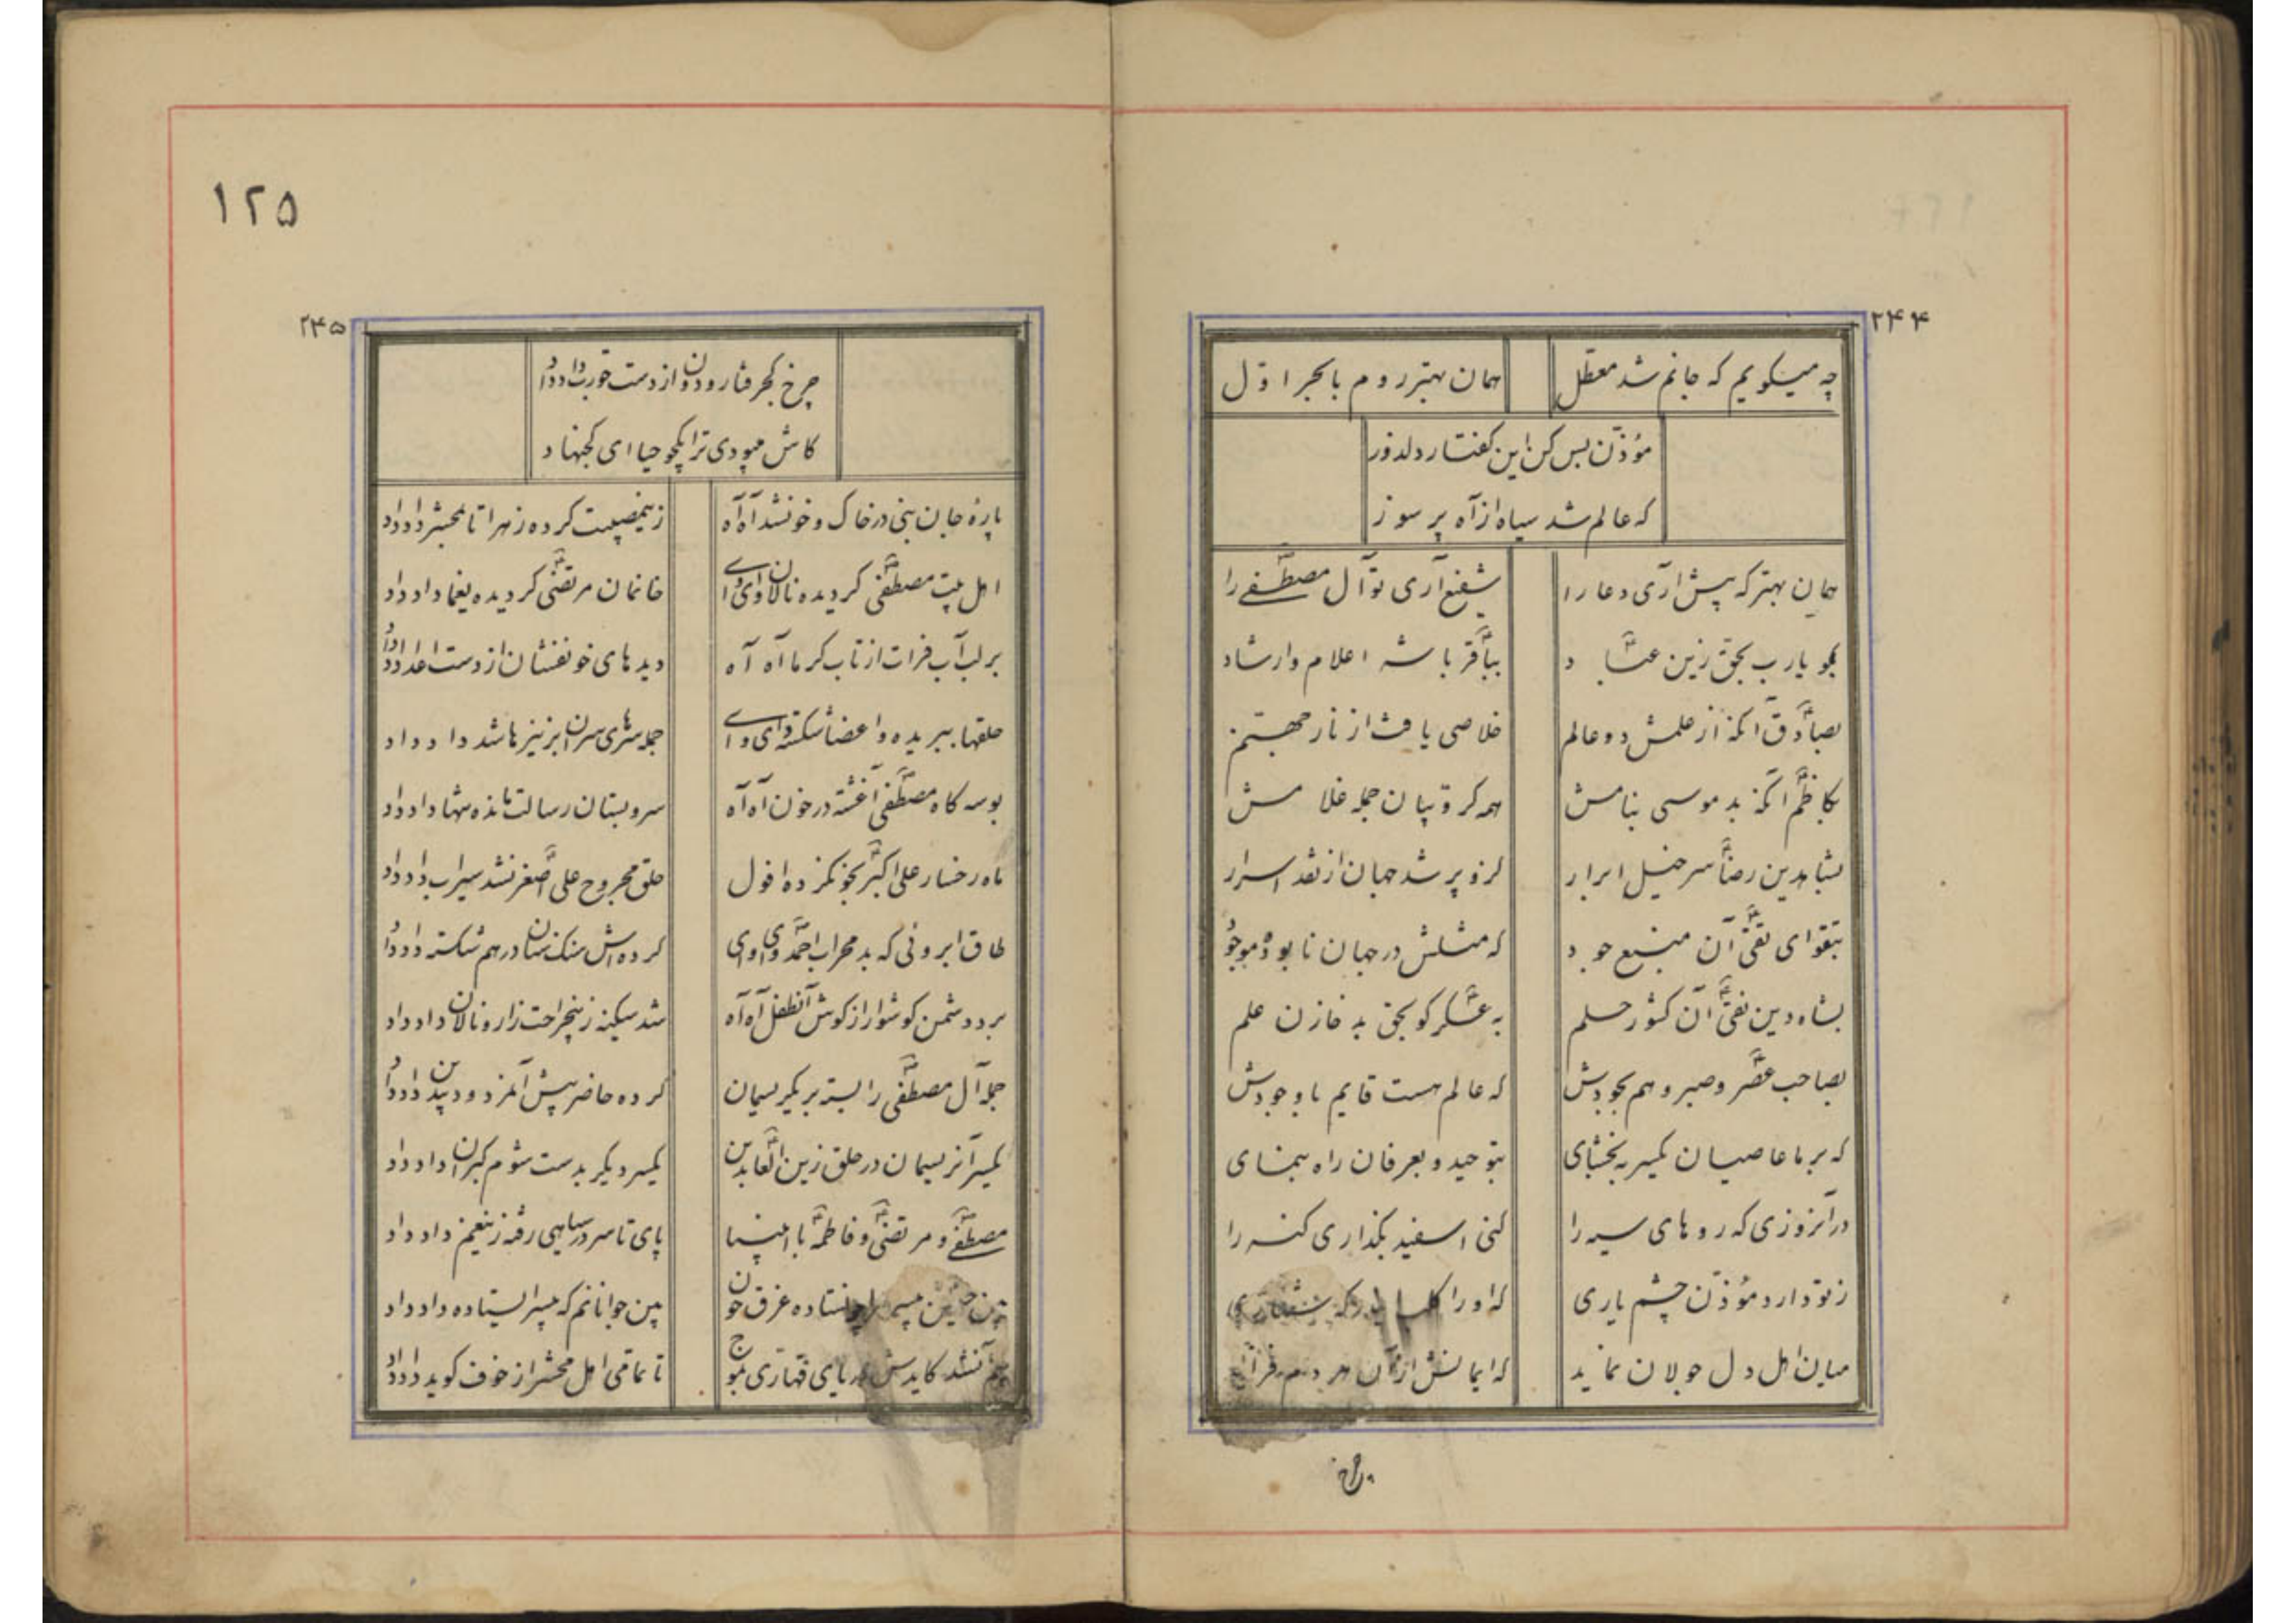 ۲۴۴
چه میکویم که جانم شد معطل همان بهتر روم با بحر اول
مؤذن بس کن این کفتار دلدوز
که عالم شد سیاه از آه پر سوز
همان بهتر که پیش آری دعا را شفیع آری تو آل مصطفی را
بکو یا رب بحق زین عباد بباقر با شه اعلام وارشاد
بصادق آنکه از علمش دو عالم خلاصی یافت از نار جهنم
بکاظم آنکه بد موسی بنامش همه کروبیان جمله غلامش
بشاهدین رضا سرخیل ابرار کزو پر شد جهان از نقد اسرار
بتقوای تقی آن منبع جود که مثلش در جهان نابود و موجود
بشاه دین نقی آن کشور حلم به عسکر کو بحق بد خازن علم
بصاحب عصر و صبر و هم بجودش که عالم هست قایم با وجودش
که بر ما عاصیان یکسر ببخشای بتوحید و بعرفان راه بنمای
در آنروزی که روهای سیه را کنی اسفید بکذاری کنه را
ز تو دارد مؤذن چشم یاری که او را
میان اهل دل جولان نماید که ایمانش از آن هر دم
۱۲۵
۲۴۵
چرخ کجرفتار و دون از دست تو داد داد
کاش میبودی ترا یکجو حیا ای کجنهاد
پارهٔ جان نبی در خاک و خونشد آه آه زینمصیبت کرده زهرا تا بمحشر داد داد
اهل بیت مصطفی کردیده نالان وای وای خانمان مرتضی کردیده یغما داد داد
بر لب آب فرات از تاب کرما آه آه دیدهای خونفشان از دست اعدا داد داد
حلقها ببریده و اعضا شکسته وای وای جمله سرهای سران بر نیزها شد داد داد
بوسه کاه مصطفی آغشته در خون آه آه سرو بستان رسالت مانده تنها داد داد
ماه رخسار علی اکبر بخون کرده افول حلق مجروح علی اصغر نشد سیراب داد داد
طاق ابروئی که بد محراب احمد وای وای کرده اش سنک سنان در هم شکسته داد داد
برد دشمن کوشوار از کوش آنطفل آه آه شد سکینه زینجراحت زار و نالان داد داد
جمله آل مصطفی را بسته بر یکریسمان کرده حاضر پیش آنمردود بیدین داد داد
یکسر آنریسمان در حلق زین العابدین یکسر دیکر بدست شوم کبران داد داد
مصطفی و مرتضی و فاطمه با انبیا پای تا سر در سیاهی رفته زینغم داد داد
غرق خون بین جوانانم که بیسر ایستاده داد داد
دریای قهاری بموج تا تمامی اهل محشر از خوف کوید داد داد